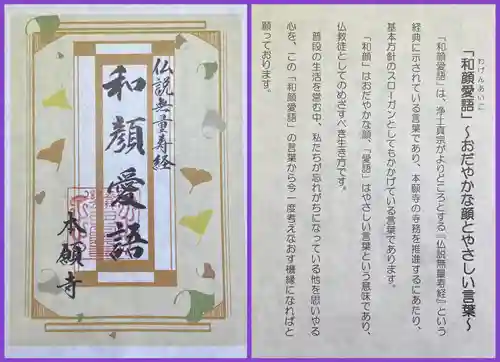 仏説無量寿経
和顔愛語
本願寺
わげんあいご
「和顔愛語」～おだやかな顔とやさしい言葉～
「和顔愛語」は、浄土真宗がよりどころとする『仏説無量寿経』という
経典に示されている言葉であり、本願寺の寺務を推進するにあたり、
基本方針のスローガンとしてもかかげている言葉であります。
「和顔」はおだやかな顔、「愛語」はやさしい言葉という意味であり、
仏教徒としてのめざすべき生き方です。
普段の生活を営む中、私たちが忘れがちになっている他を思いやる
心を、この「和顔愛語」の言葉から今一度考えなおす機縁になればと
願っております。